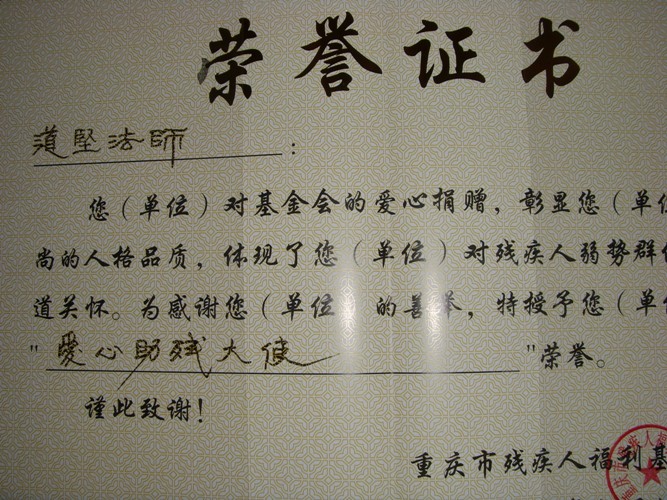 荣誉证书
道坚法师：
您（单位）对基金会的爱心捐赠，彰显您（单位
尚的人格品质，体现了您（单位）对残疾人弱势群体
道关怀。为感谢您（单位）的善举，特授予您（单
"爱心助残大使"荣誉。
谨此致谢！
重庆市残疾人福利基